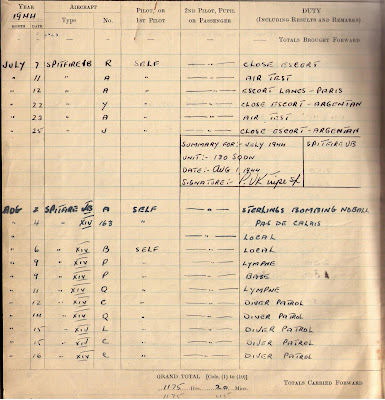 YEAR AIRCRAFT PILOT, OR 1ST PILOT 2ND PILOT, PUPIL OR PASSENGER DUTY (INCLUDING RESULTS AND REMARKS)
1944
MONTH DATE Type No.
TOTALS BROUGHT FORWARD
JULY 7 SPITFIRE VB R SELF — CLOSE ESCORT
" 11 " A " — AIR TEST
" 12 " A " — ESCORT LANCS - PARIS
" 22 " Y " — CLOSE ESCORT - ARGENTAN
" 23 " A " — AIR TEST
" 25 " J " — CLOSE ESCORT - ARGENTAN
SUMMARY FOR:- JULY 1944 SPITFIRE VB
UNIT:- 130 SQDN
DATE:- AUG 1, 1944
SIGNATURE:-
AUG 2 SPITFIRE VB A SELF — STERLINGS BOMBING NOBALL
" 4 " XIV 163 " PAS DE CALAIS
— LOCAL
" 6 " XIV B SELF — LOCAL
" 9 " XIV P " — LYMPNE
" 9 " XIV P " — BASE
" 11 " XIV Q " — LYMPNE
" 12 " XIV C " — DIVER PATROL
" 14 " XIV Q " — DIVER PATROL
" 15 " XIV L " — DIVER PATROL
" 15 " XIV C " — DIVER PATROL
" 16 " XIV " — DIVER PATROL
GRAND TOTAL [Cols. (1) to (10)]
1175 Hrs. 20 Mins.
TOTALS CARRIED FORWARD